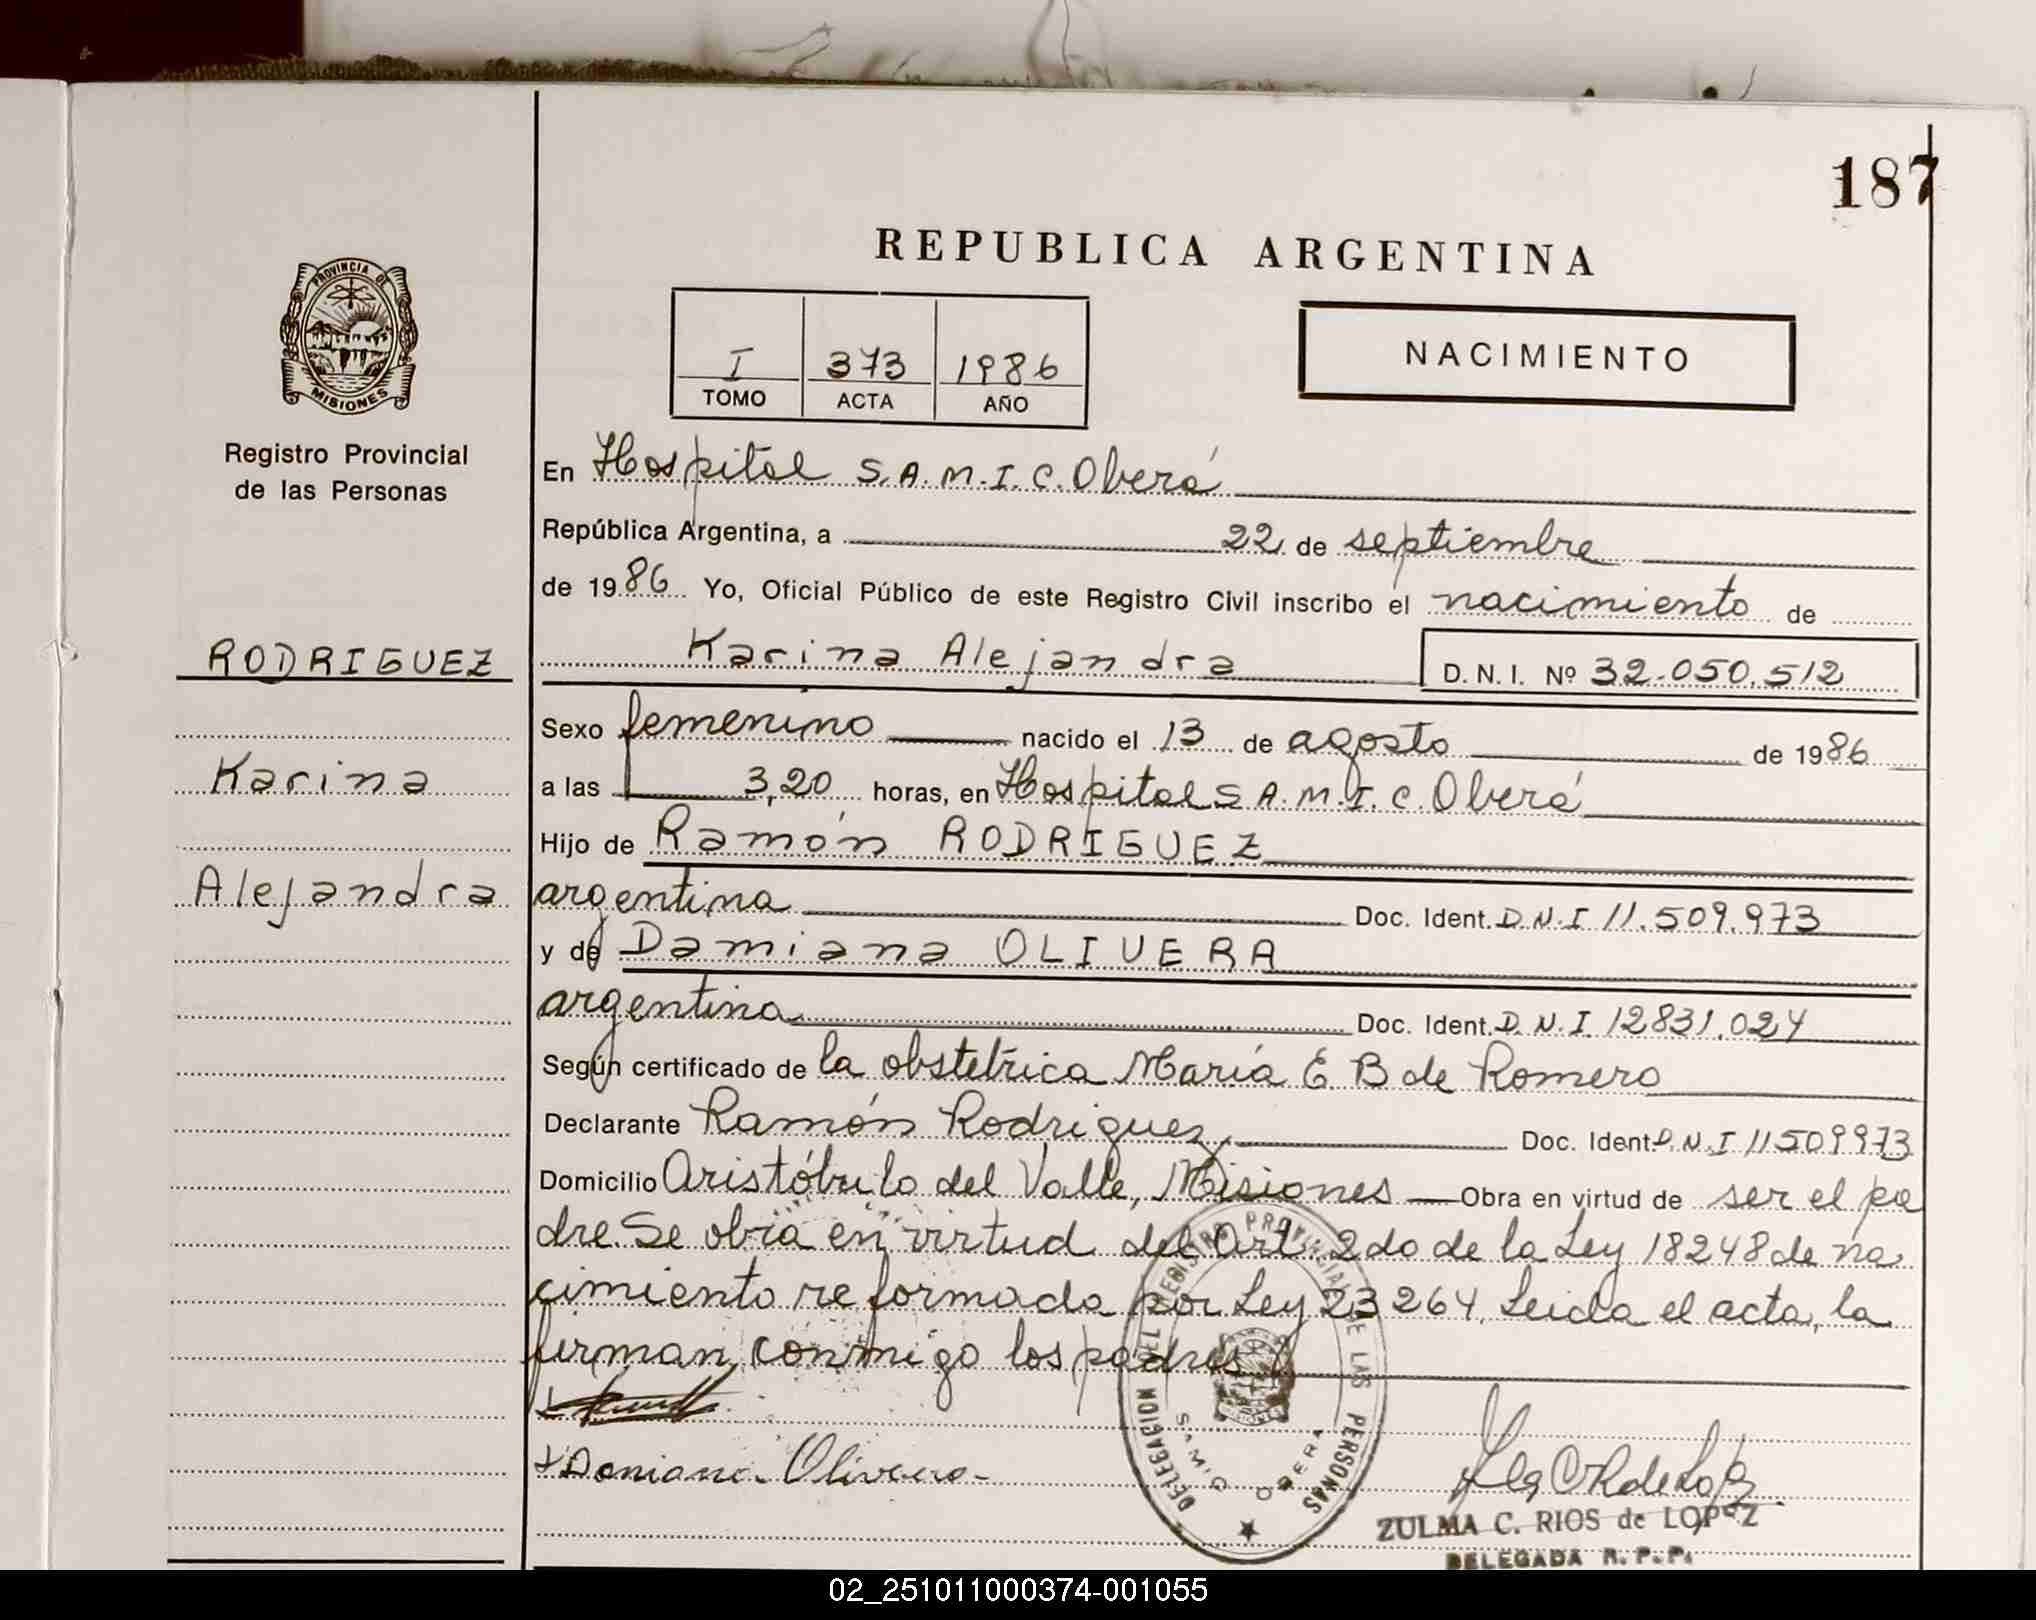 187
REPUBLICA ARGENTINA
PROVINCIA DE
MISIONES
Registro Provincial
de las Personas
I 373 1986
TOMO ACTA AÑO
NACIMIENTO
En Hospital S.A.M.I.C. Oberá
República Argentina, a 22 de septiembre
de 1986 Yo, Oficial Público de este Registro Civil inscribo el nacimiento de
RODRIGUEZ
Karina Alejandra D. N. I. Nº 32.050.512
Sexo femenino nacido el 13 de agosto de 1986
Karina
a las 3,20 horas, en Hospital S A.M.I.C. Oberá
Hijo de Ramón RODRIGUEZ
Alejandra
argentina Doc. Ident. D.N.I 11.509.973
y de Damiana OLIVERA
argentina Doc. Ident. D.N.I. 12831.024
Según certificado de la obstetrica María E B de Romero
Declarante Ramón Rodriguez, Doc. Ident. D.N.I 11509973
Domicilio Aristóbulo del Valle, Misiones Obra en virtud de ser el pa
dre. Se obra en virtud del Art. 2do de la Ley 18248 de na
cimiento reformada por Ley 23264. Leida el acta, la
firman conmigo los padres
Damiana Olivera
DELEGACION DEL REGISTRO PROVINCIAL DE LAS PERSONAS
SAMIC OBERA
ZULMA C. RIOS de LOPEZ
DELEGADA R.P.P.
02_251011000374-001055